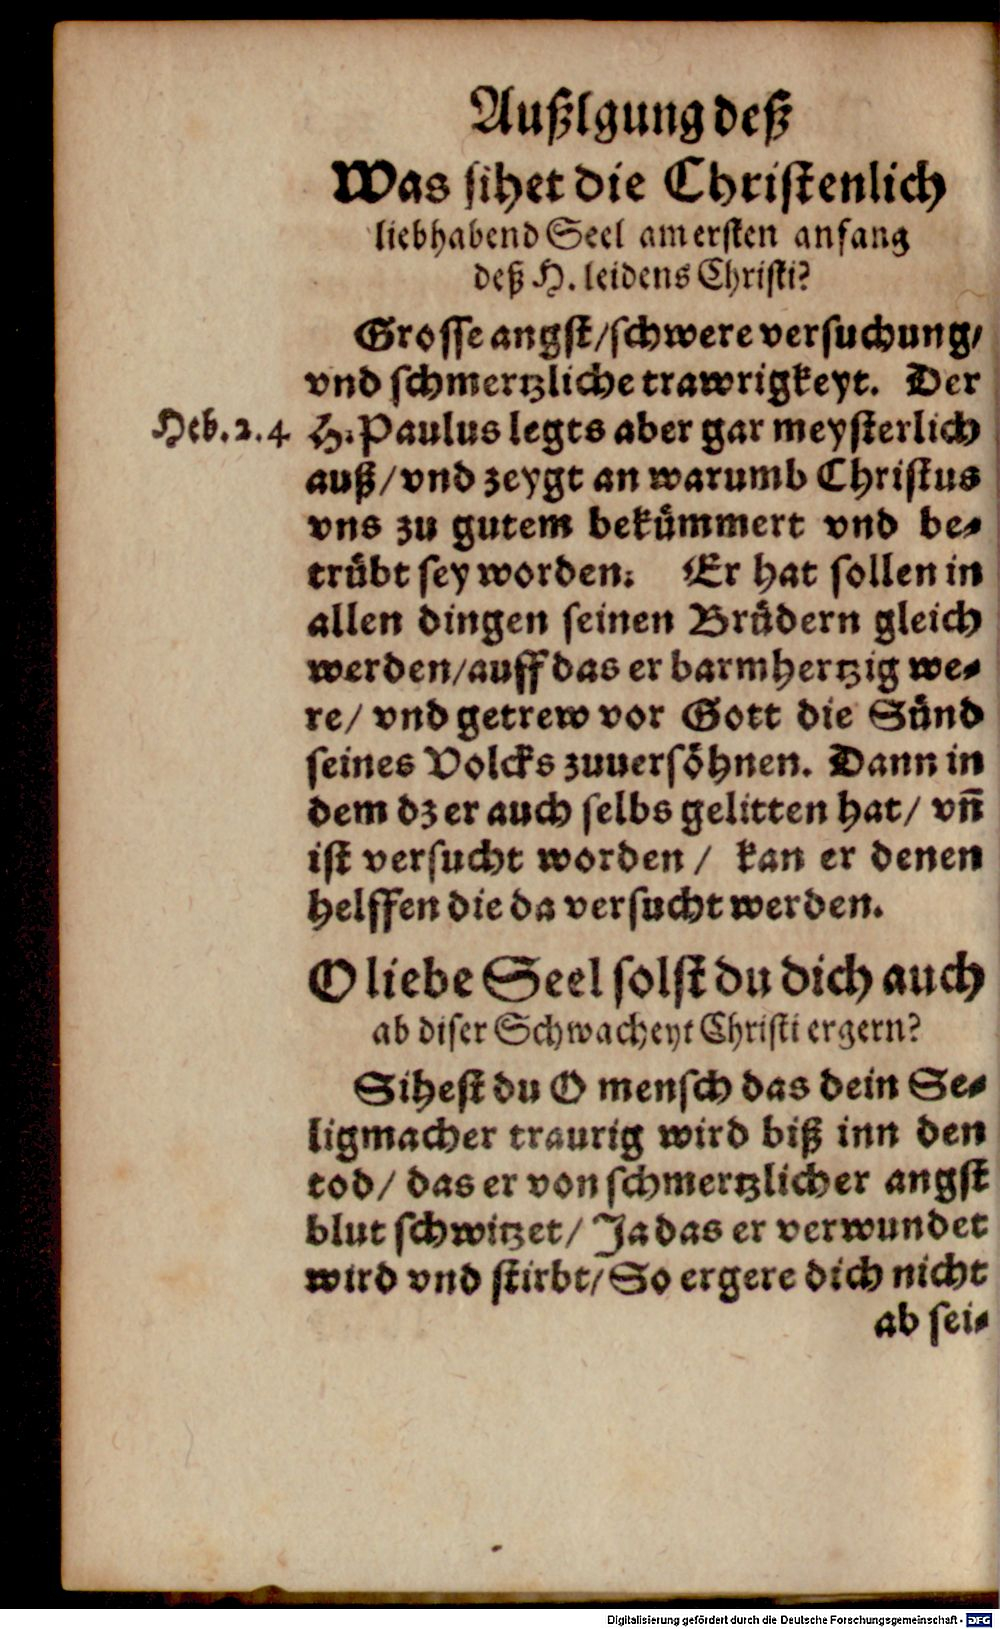 Außlgung deß
Was sihet die Christenlich
liebhabend Seel am ersten anfang
deß H. leidens Christi?
Grosse angst/schwere versuchung/
vnd schmertzliche trawrigkeyt. Der
Heb. 2. 4
H. Paulus legts aber gar meysterlich
auß/vnd zeygt an warumb Christus
vns zu gutem bekümmert vnd be-
trübt sey worden: Er hat sollen in
allen dingen seinen Brüdern gleich
werden/auff das er barmhertzig we-
re/ vnd getrew vor Gott die Sünd
seines Volcks zuuersöhnen. Dann in
dem dz er auch selbs gelitten hat/ vñ
ist versucht worden / kan er denen
helffen die da versucht werden.
O liebe Seel solst du dich auch
ab diser Schwacheyt Christi ergern?
Sihest du O mensch das dein Se-
ligmacher traurig wird biß inn den
tod/ das er von schmertzlicher angst
blut schwitzet/ Ja das er verwundet
wird vnd stirbt/So ergere dich nicht
ab sei-
Digitalisierung gefördert durch die Deutsche Forschungsgemeinschaft - DFG